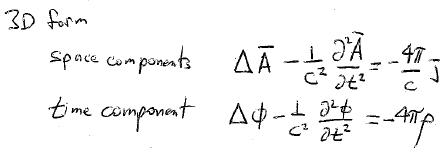 3D form
space components Δ Ā − 1/c² ∂²Ā/∂t² = −4π/c j̄
time component Δϕ − 1/c² ∂²ϕ/∂t² = −4πρ